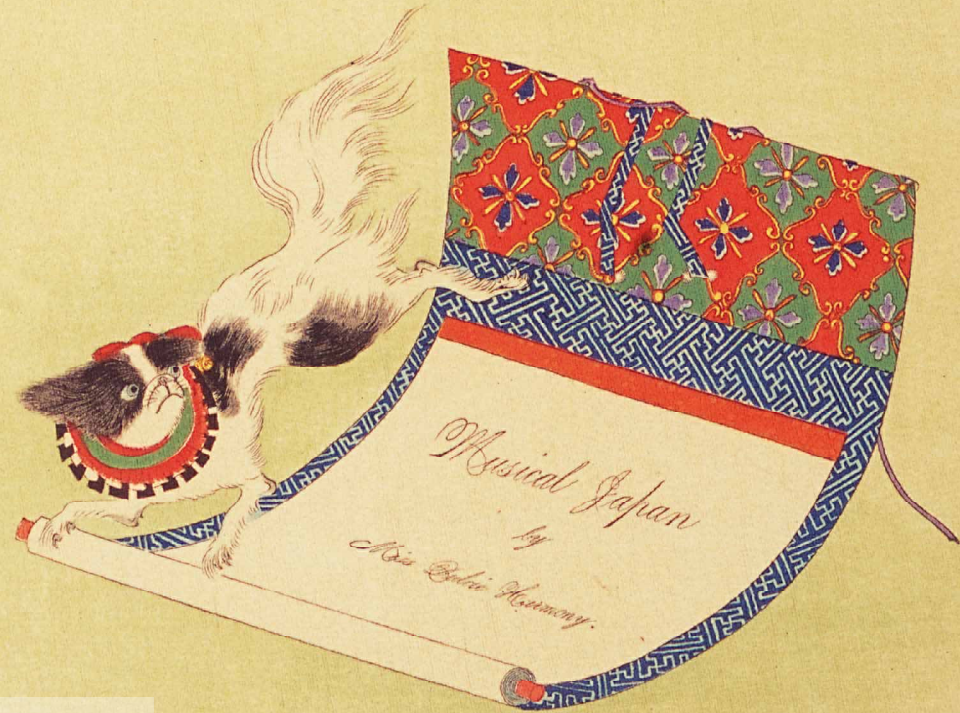 Musical Japan
by
Miss Harmony.